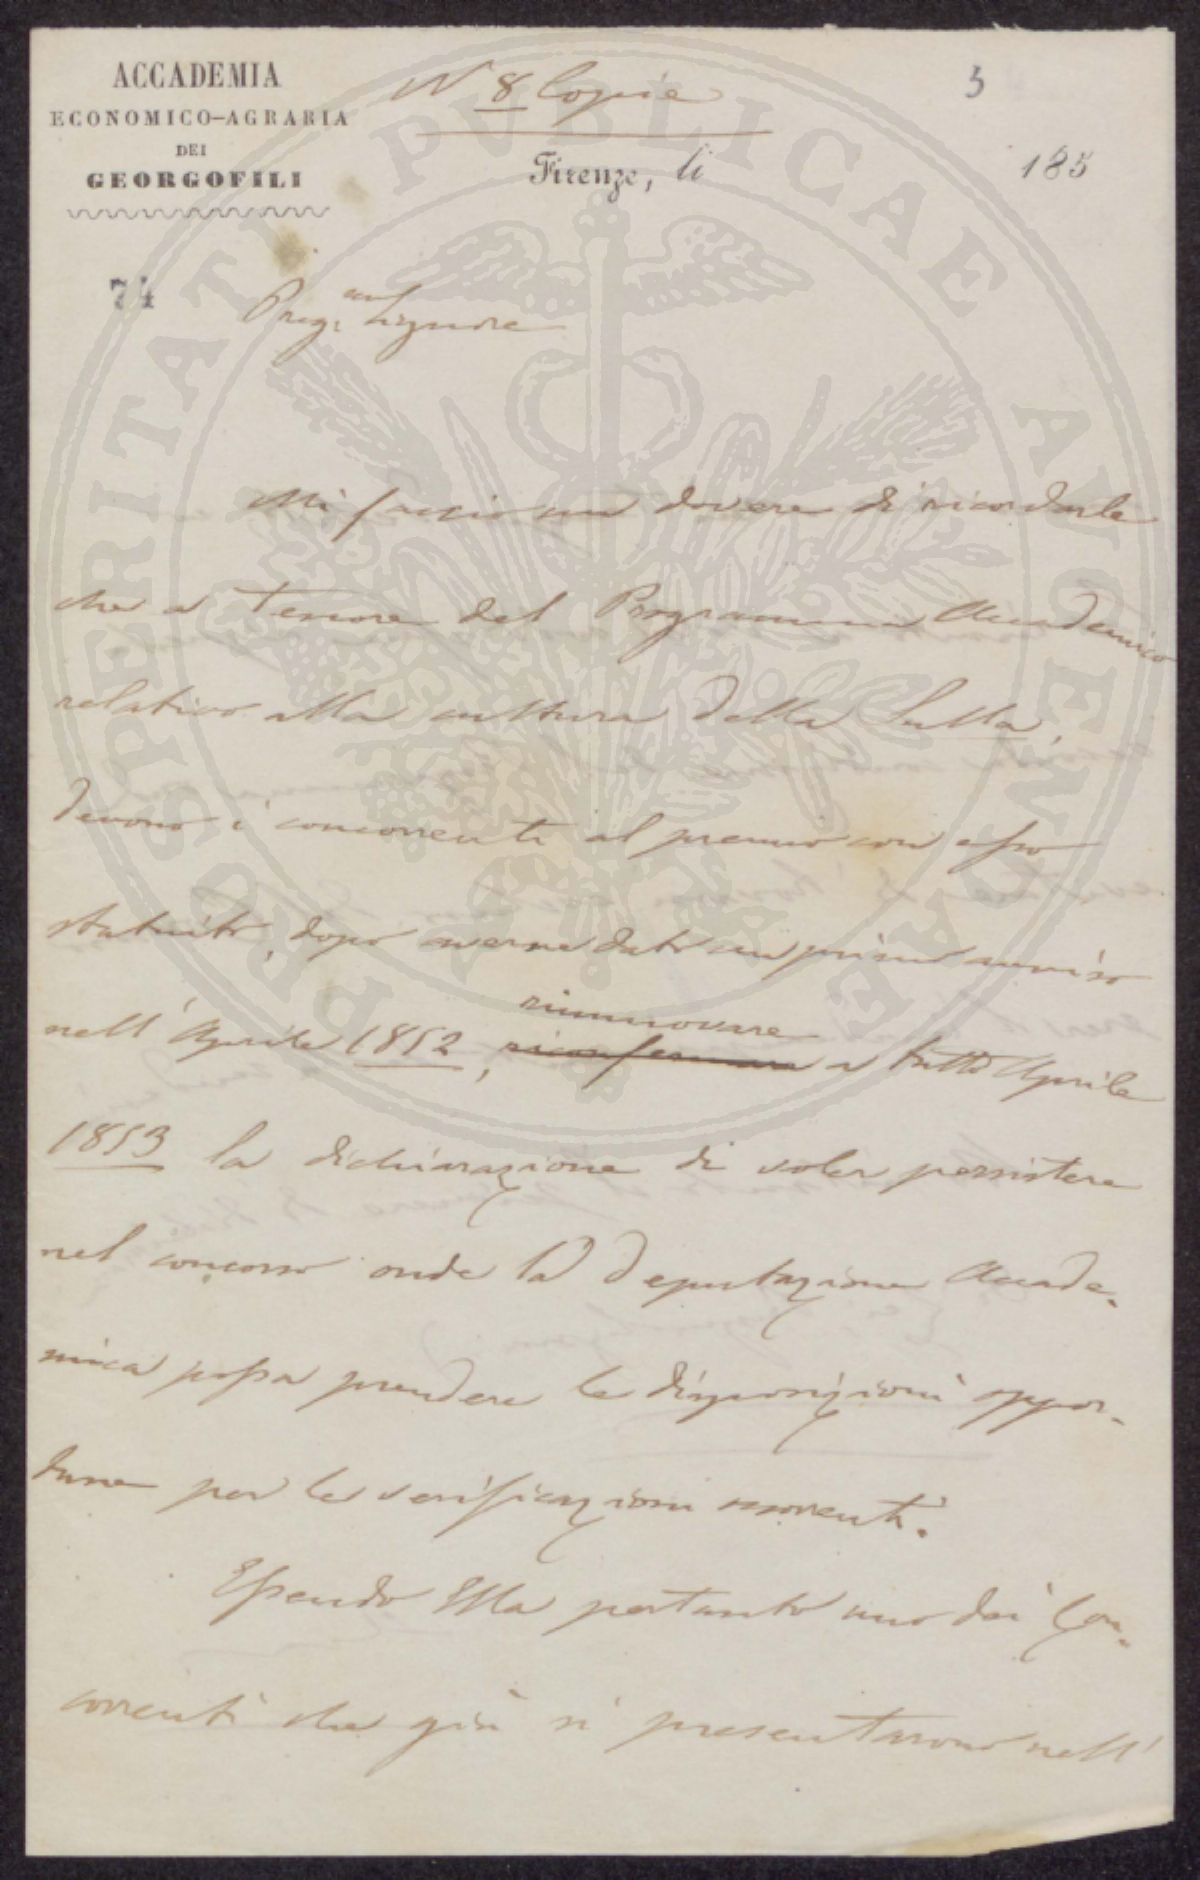 ACCADEMIA
ECONOMICO-AGRARIA
DEI
GEORGOFILI
N 8 Copie
3
Firenze, li 185
74
Preg. mo Signore
Mi faccio un dovere di ricordarle
che a tenore del Programma Accademico
relativo alla cultura della Sulla,
devono i concorrenti al premio con esso
statuito, dopo averne dato un primo avviso
rinnuovare
nell' Aprile 1852, riconfermare a tutto Aprile
1853 la dichiarazione di voler persistere
nel concorso onde la Deputazione Accade-
mica possa prendere le disposizioni oppor-
tune per le verificazioni occorrenti.
Essendo Ella pertanto uno dei Con-
correnti che già si presentarono nell'
PROSPERITATI PVBLICAE AVGENDAE